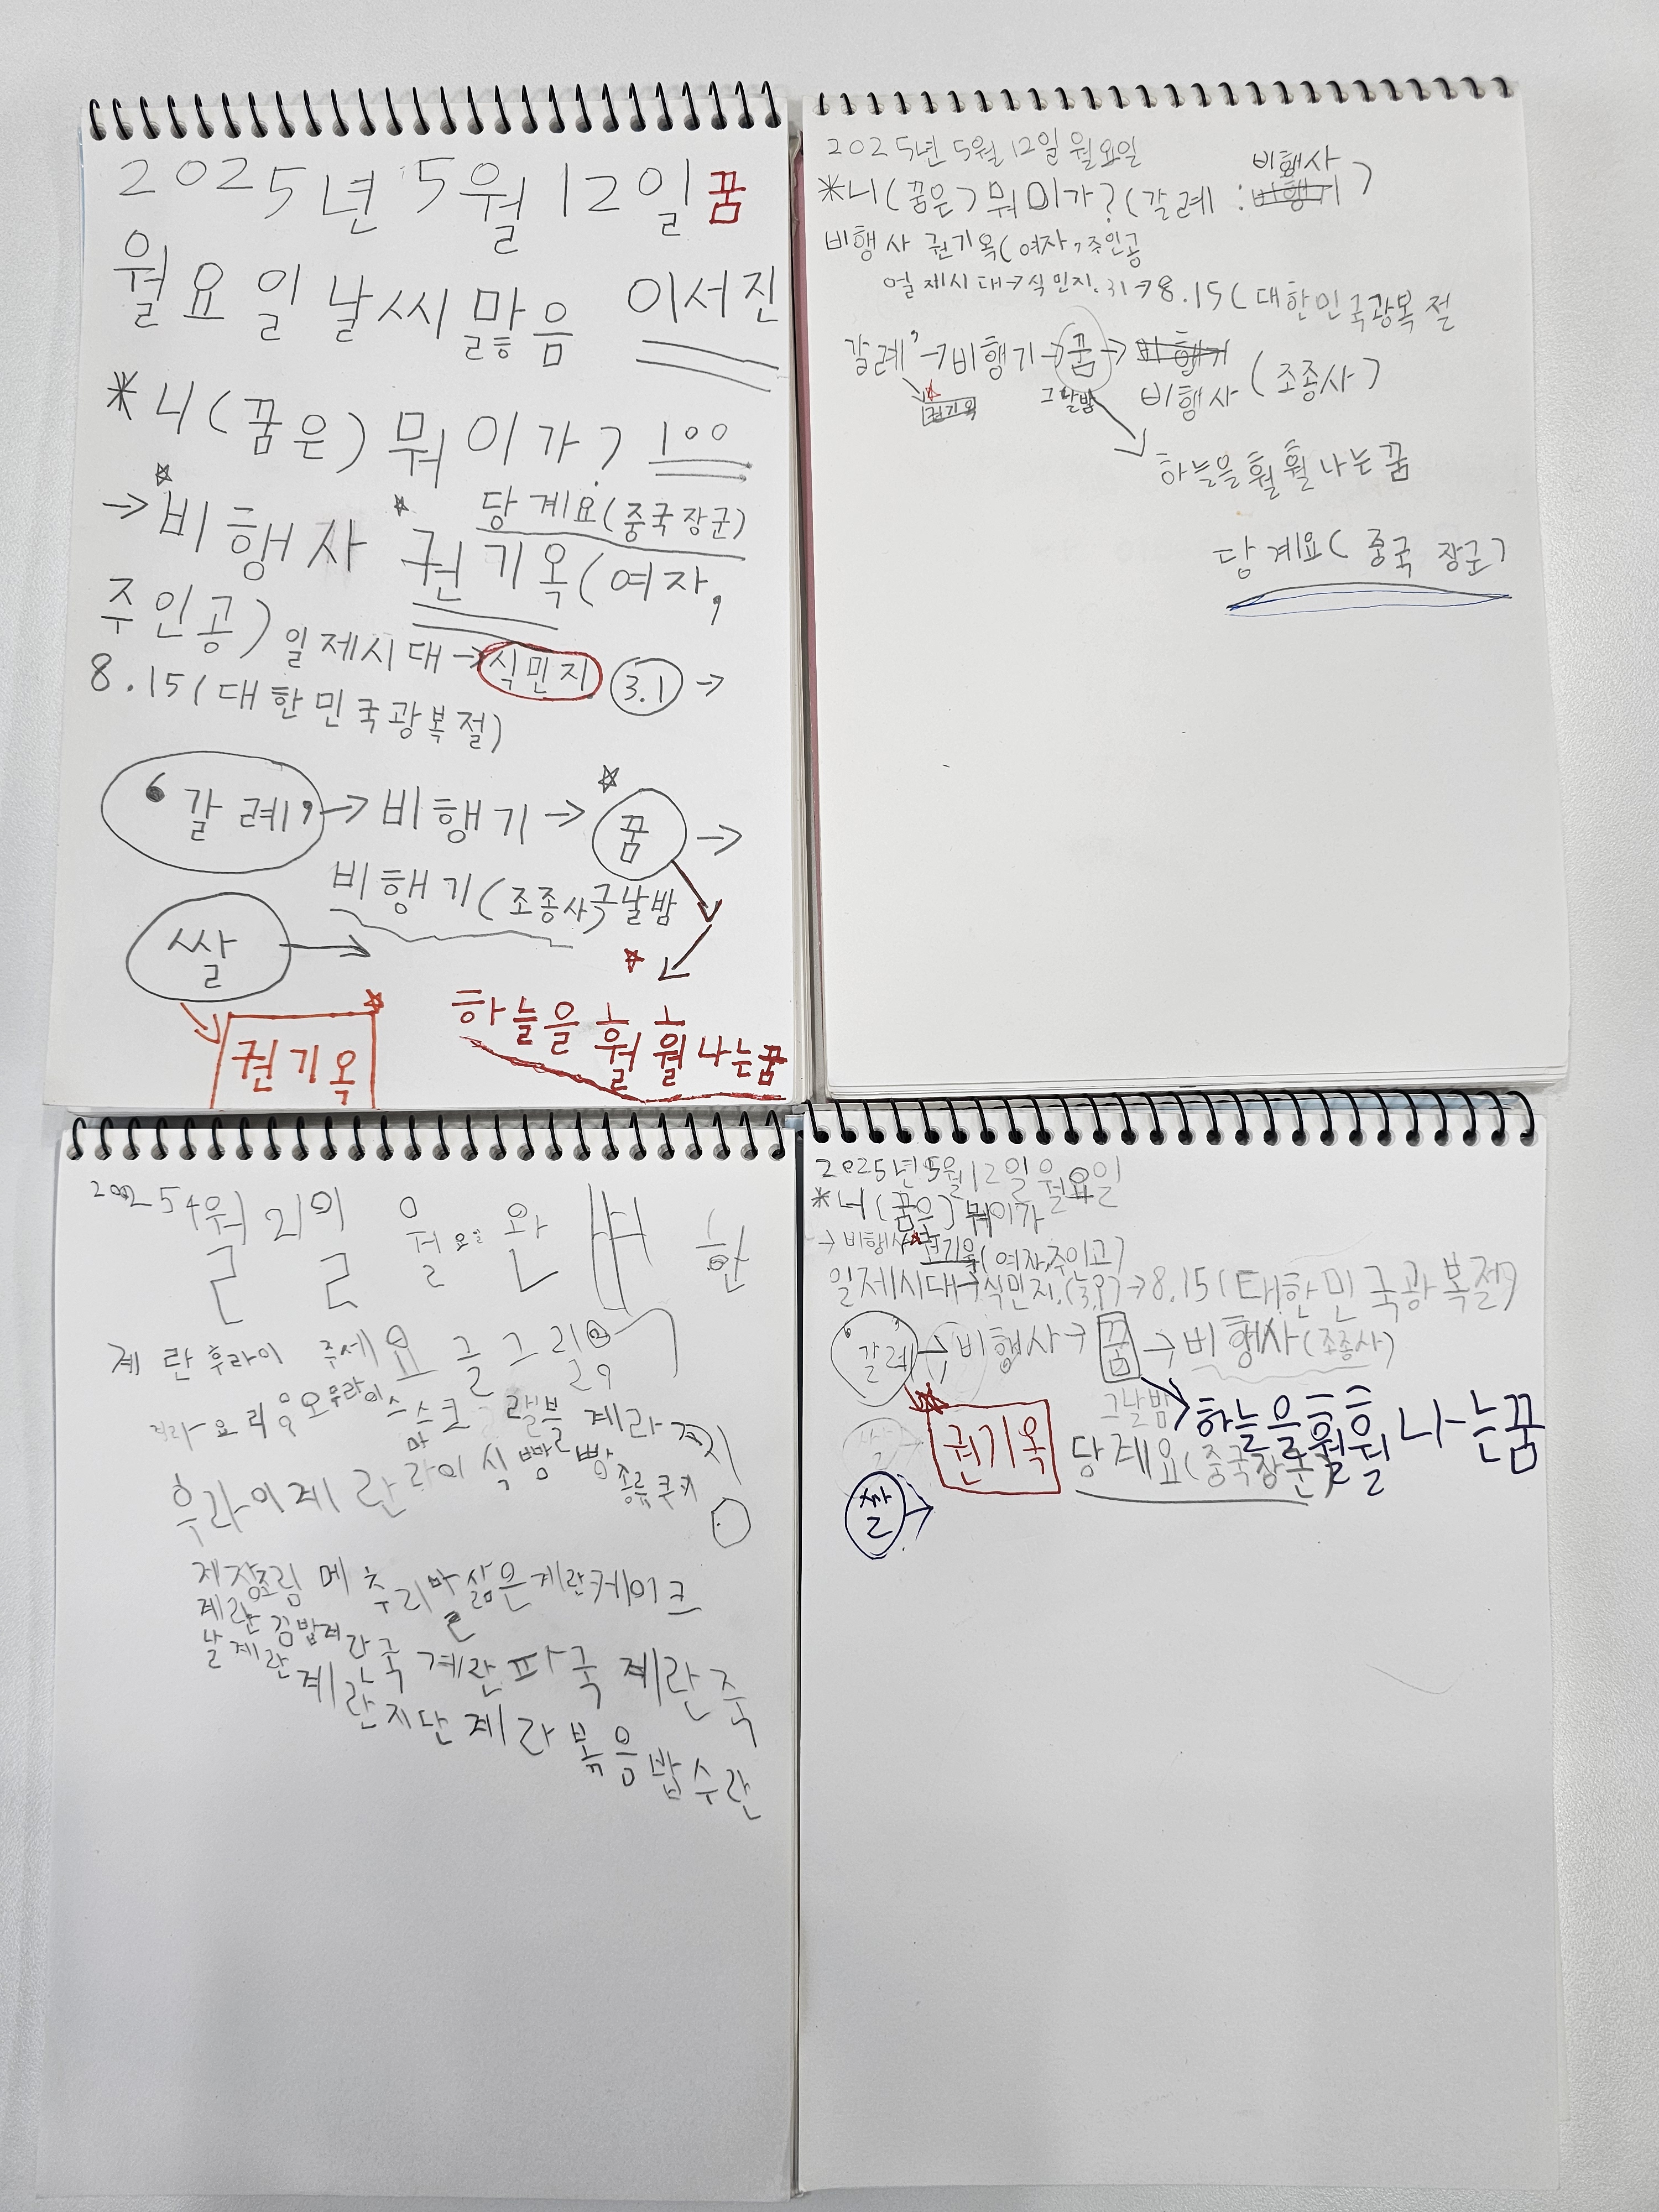 2025년 5월 12일 꿈
월요일 날씨 맑음 이서진
*니(꿈은) 뭐이가? 100
당계요(중국장군)
→비행사 권기옥(여자,
주인공) 일제시대→식민지 3.1→
8.15(대한민국광복절)
'갈례'→비행기→꿈→
비행기(조종사) 그날밤
쌀→
하늘을 훨훨 나는꿈
권기옥
2025년 5월 12일 월요일
비행사
*니(꿈은) 뭐이가? (갈례: 비행기)
비행사 권기옥(여자, 주인공
일제시대→식민지.31→8.15(대한민국광복절
갈례'→비행기→꿈→비행기
비행사(조종사)
권기옥
그날밤
하늘을 훨훨 나는꿈
당계요(중국 장군)
2025 4월 21일 월요일
계란후라이 주세요 글 그림
후라이 계란 식빵 빵
종류 쿠키
메추리알 삶은계란 케이크
계란 김밥
날계란
계란국 계란파국 계란죽
계란지단 계라볶음밥 수란
2025년 5월 12일 월요일
*너(꿈은) 뭐이가
→비행사 권기옥(여자,주이고)
일제시대→식민지.→8.15(대한민국광복절)
'갈례'→비행사→꿈→비행사(조종사)
그날밤
하늘을훨훨 나는꿈
쌀→
권기옥
당계요(중국장군)
쌀→